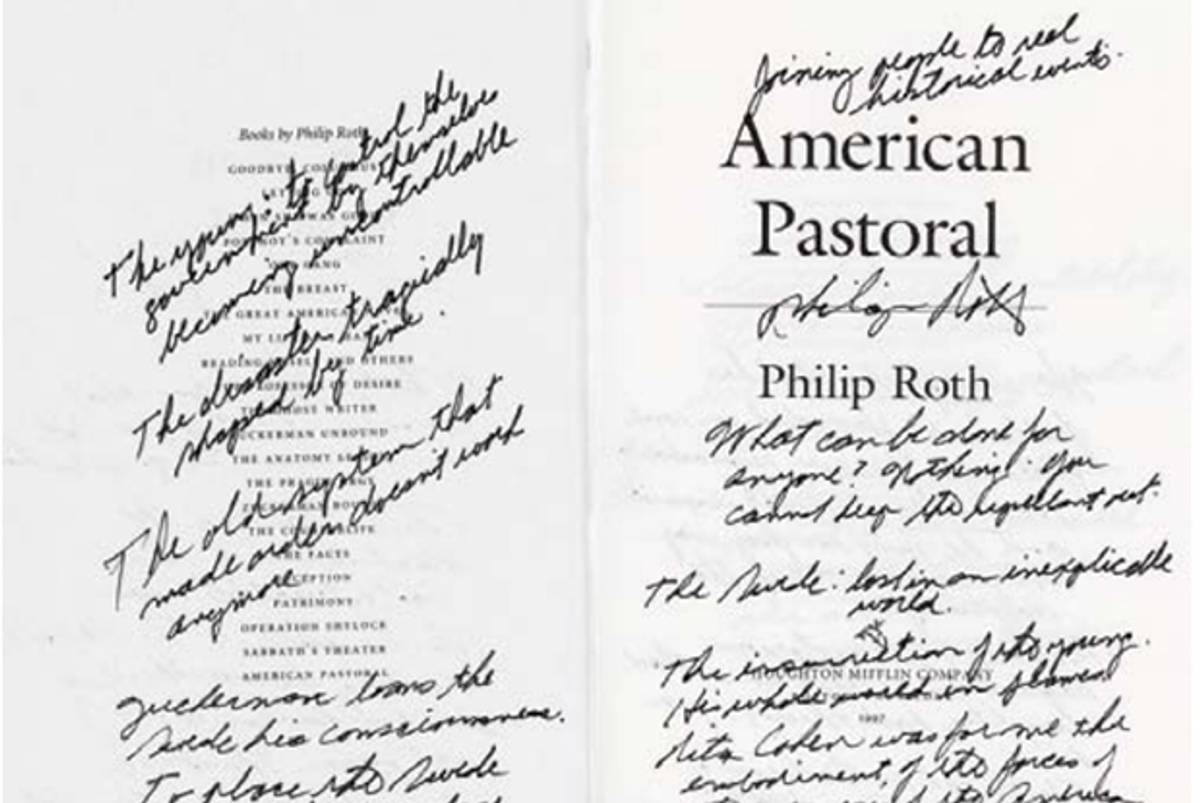 The young: to control the
government by themselves
becoming uncontrollable
The disaster tragically
shaped by time.
The old system that
made order doesn't work
anymore
Zuckerman loans the
Swede his consciousness.
To place the Swede
Books by Philip Roth
GOODBYE, COLUMBUS
LETTING
PORTNOY'S COMPLAINT
OUR GANG
THE BREAST
THE GREAT AMERICAN
MY LIFE
READING MYSELF AND OTHERS
THE PROFESSOR OF DESIRE
THE GHOST WRITER
ZUCKERMAN UNBOUND
THE ANATOMY
THE PRAGUE ORGY
ZUCKERMAN BOUND
THE COUNTERLIFE
THE FACTS
DECEPTION
PATRIMONY
OPERATION SHYLOCK
SABBATH'S THEATER
AMERICAN PASTORAL
Joining people to real
historical events.
American
Pastoral
Philip Roth
Philip Roth
What can be done for
anyone? Nothing. You
cannot keep the repellant out.
The Swede: lost in an inexplicable
world.
The insurrection of the young.
HOUGHTON MIFFLIN COMPANY
His whole world in flames.
1997
Rita Cohen was for me the
embodiment of the forces of